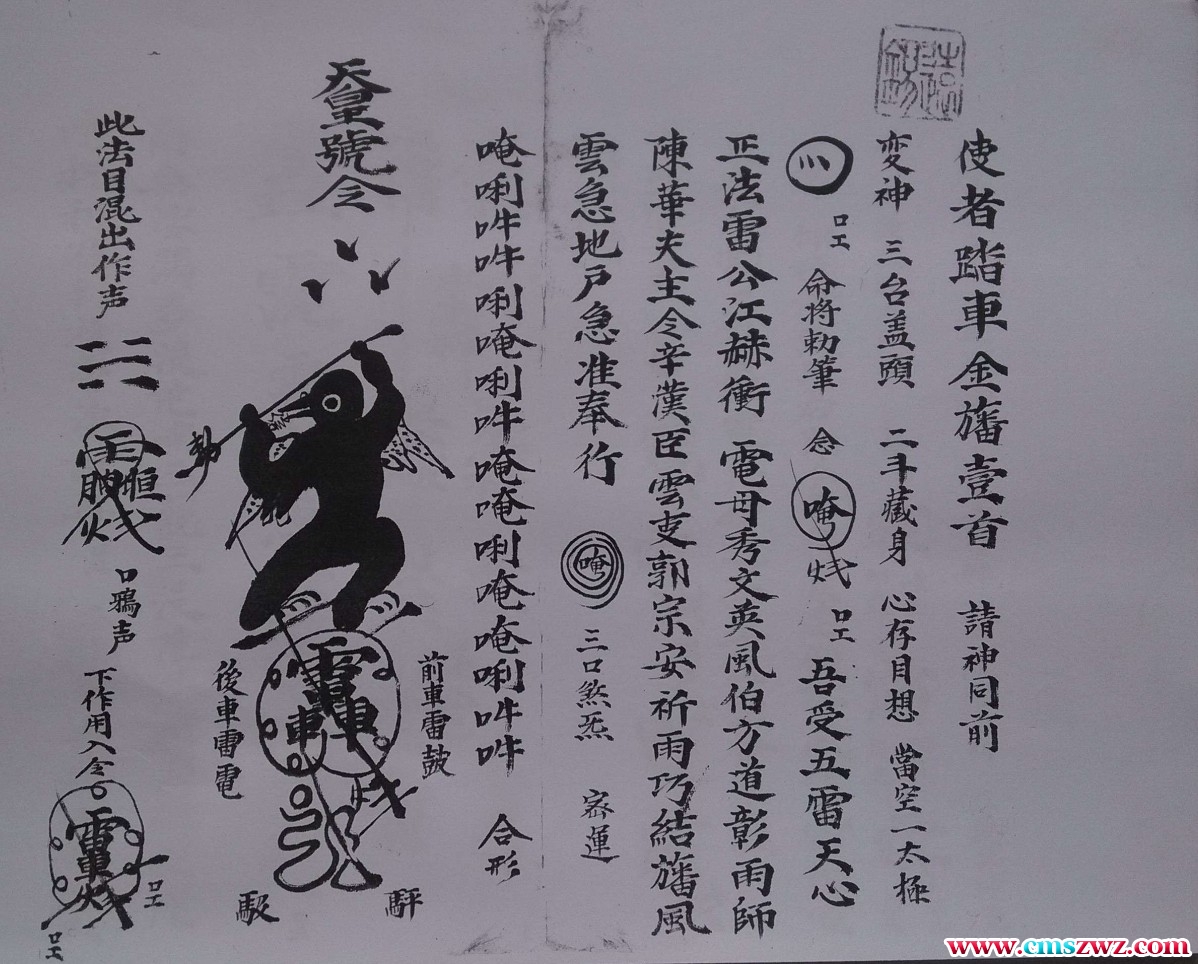 使者踏車金旛壹首 請神同前
変神 三台盖頭 二斗藏身 心存目想 當空一太極
命将勅筆 念 唵 吾受五雷天心
正法雷公江赫衝 電母秀文英風伯方道彰雨師
陳華夫主令辛漢臣雲吏郭宗安祈雨巧結旛風
雲急地戶急准奉行 唵 三口煞炁 密運
唵唎吽吽唎唵唎吽唵唵唎唵唵唎吽吽 合形
天皇號令
勅
前車雷鼓
後車雷電
此法目混出作声
口鴉声
下作用入念
www.cmszwz.com